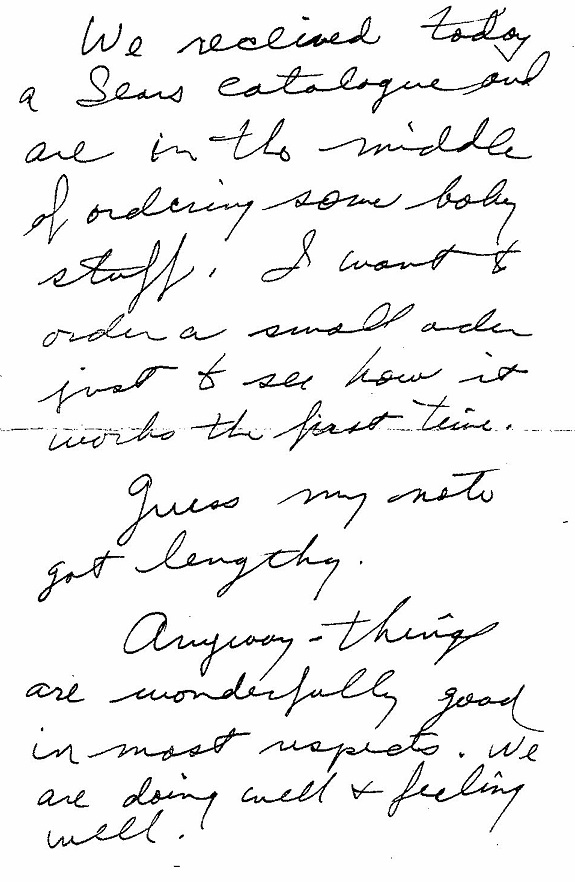 We received today
a Sears catalogue and
are in the middle
of ordering some baby
stuff. I want to
order a small order
just to see how it
works the first time.
Guess my note
got lengthy.
Anyway - things
are wonderfully good
in most respects. We
are doing well & feeling
well.